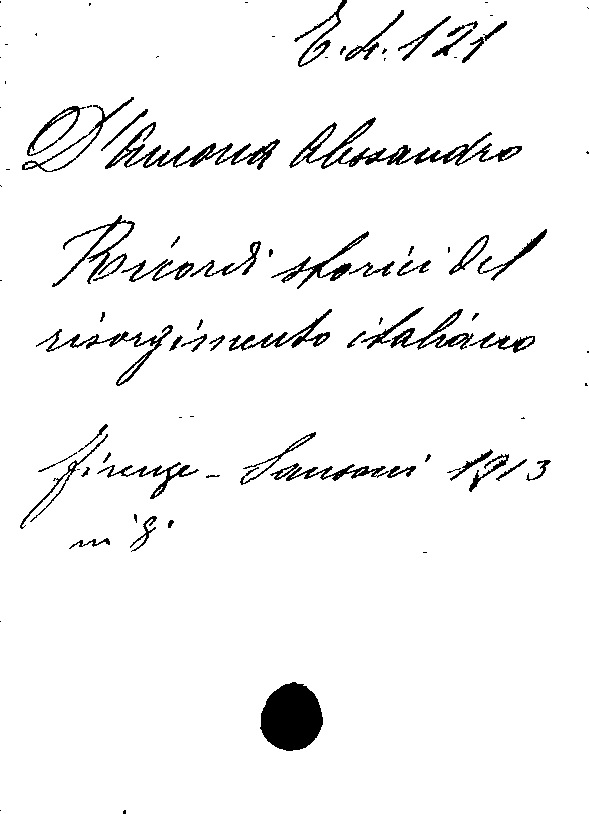 E.4.121
D'Ancona Alessandro
Ricordi storici del
risorgimento italiano
Firenze - Sansoni 1913
in 8.